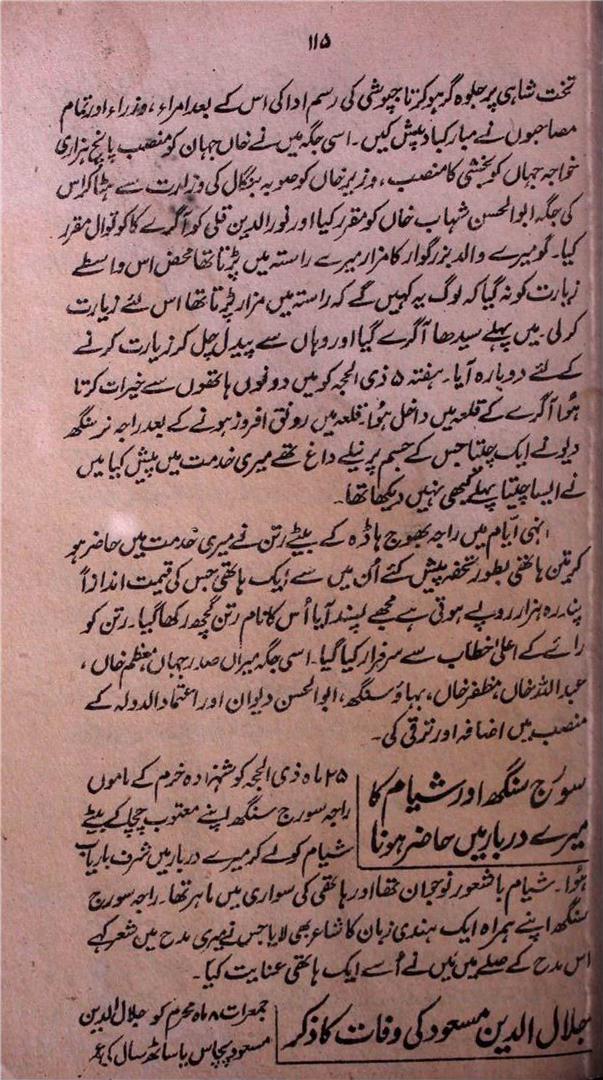 ۱۱۵
تخت شاہی پر جلوہ گر ہو کر تاجپوشی کی رسم ادا کی اس کے بعد امراء، وزراء اور تمام
مصاحبوں نے مبارکباد پیش کیں۔ اسی جگہ میں نے خاں جہان کو منصب پانچ ہزاری
خواجہ جہاں کو بخشی کا منصب، وزیر خاں کو صوبہ بنگال کی وزارت سے ہٹا کر اس
کی جگہ ابوالحسن شہاب خاں کو مقرر کیا اور نورالدین قلی کو آگرے کا کوتوال مقرر
کیا۔ گو میرے والد بزرگوار کا مزار میرے راستہ میں پڑتا تھا محض اس واسطے
زیارت کو نہ گیا کہ لوگ یہ کہیں گے کہ راستہ میں مزار پڑتا تھا اس لئے زیارت
کر لی۔ میں پہلے سیدھا آگرے گیا اور وہاں سے پیدل چل کر زیارت کرنے
کے لئے دوبارہ آیا۔ ہفتہ ۵ ذی الحجہ کو میں دونوں ہاتھوں سے خیرات کرتا
ہؤا آگرے کے قلعہ میں داخل ہؤا۔ قلعہ میں رونق افروز ہونے کے بعد راجہ نرسنگھ
دیو نے ایک چیتا جس کے جسم پر نیلے داغ تھے میری خدمت میں پیش کیا میں
نے ایسا چیتا پہلے کبھی نہیں دیکھا تھا۔
انہی ایام میں راجہ بھوج ہاڈہ کے بیٹے رتن نے میری خدمت میں حاضر ہو
کر تین ہاتھی بطور تحفہ پیش کئے اُن میں سے ایک ہاتھی جس کی قیمت اندازاً
پندرہ ہزار روپے ہوتی ہے مجھے پسند آیا اُس کا نام رتن گجھ رکھا گیا۔ رتن کو
رائے کے اعلیٰ خطاب سے سرفراز کیا گیا۔ اسی جگہ میراں صدر جہاں معظم خاں،
عبداللہ خاں، مظفر خاں، بہاؤ سنگھ، ابوالحسن دیوان اور اعتماد الدولہ کے
منصب میں اضافہ اور ترقی کی۔
سورج سنگھ اور شیام کا
میرے دربار میں حاضر ہونا
۲۵ ماہ ذی الحجہ کو شہزادہ خرم کے ماموں
راجہ سورج سنگھ اپنے معتوب چچا کے بیٹے
شیام کو لے کر میرے دربار میں شرف باریاب
ہؤا۔ شیام باشعور نوجوان تھا اور ہاتھی کی سواری میں ماہر تھا۔ راجہ سورج
سنگھ اپنے ہمراہ ایک ہندی زبان کا شاعر بھی لایا جس نے میری مدح میں شعر کہے
اس مدح کے صلے میں میں نے اُسے ایک ہاتھی عنایت کیا۔
جلال الدین مسعود کی وفات کا ذکر
جمعرات ۸ ماہ محرم کو جلال الدین
مسعود پچاس یا ساٹھ سال کی عمر